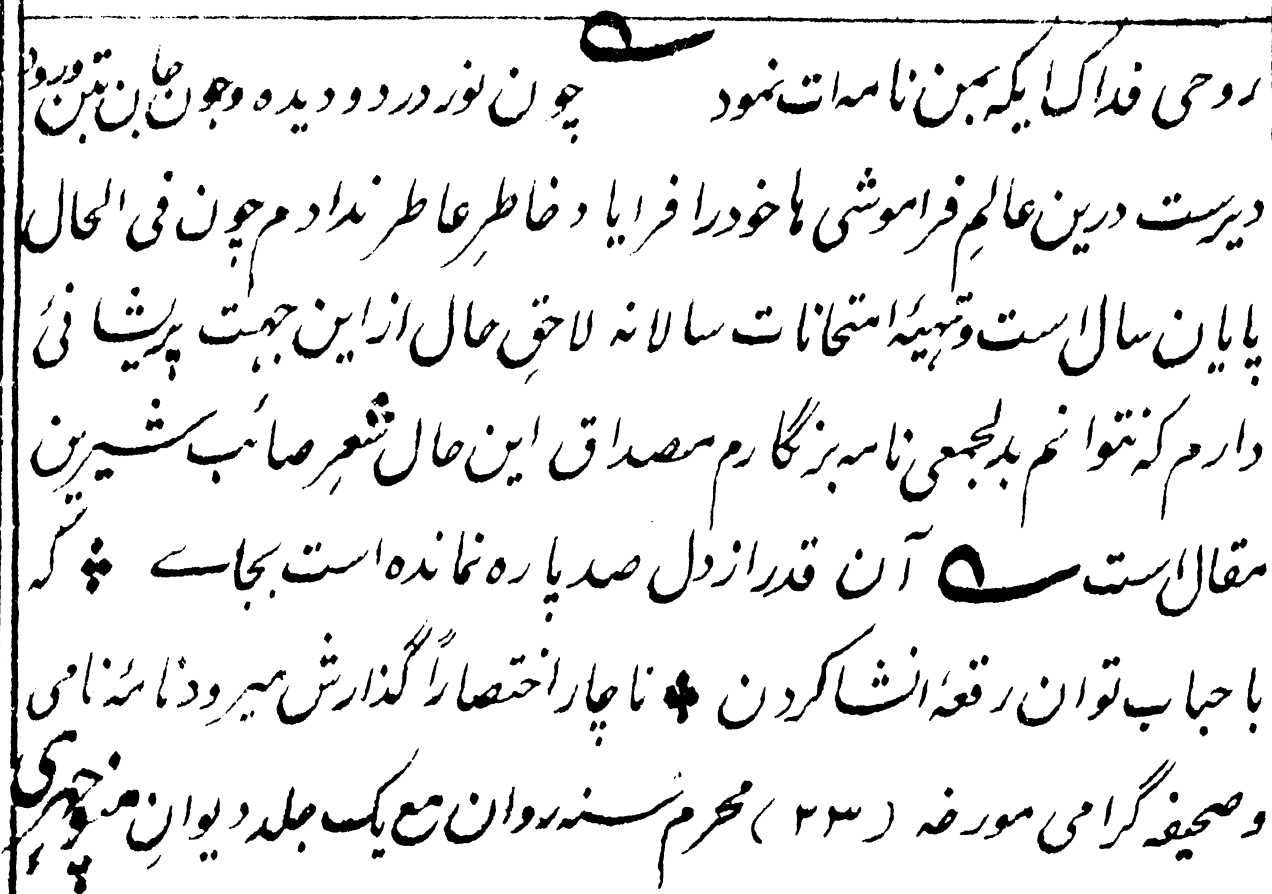 روحی فداک ایکه بمن نامه ات نمود چون نور در دو دیده و چون جان بتن ورود
دیرست درین عالمِ فراموشی ها خود را فرا یاد خاطرِ عاطر ندادم چون فی الحال
پایان سال است و تهیۂ امتحانات سالانه لاحقِ حال از این جهت پریشانیٔ
دارم که نتوانم بدلجمعی نامه بر نگارم مصداق این حال شعرِ صائب شیرین
مقال است آن قدر از دل صد پاره نمانده است بجاے که
با حباب توان رقعۂ انشا کردن ناچار اختصاراً گذارش میرود نامۂ نامی
و صحیفه گرامی مورخه (۲۳) محرم سنه روان مع یک جلد دیوانِ منوچهری